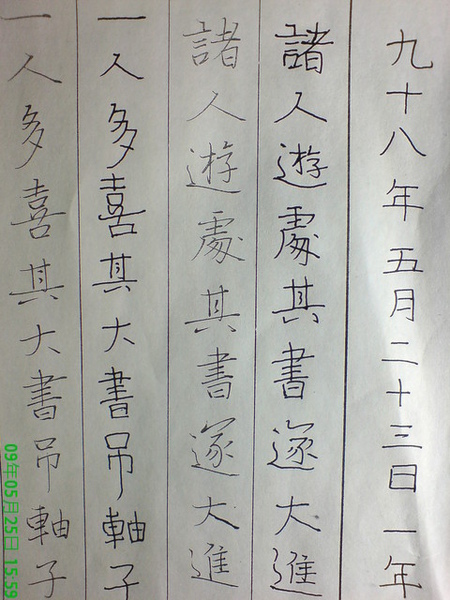 九十八年五月二十三日一年
諸人遊處其書遂大進
諸人遊處其書遂大進
一人多喜其大書吊軸子
一人多喜其大書吊軸子
09年05月25日 15:59